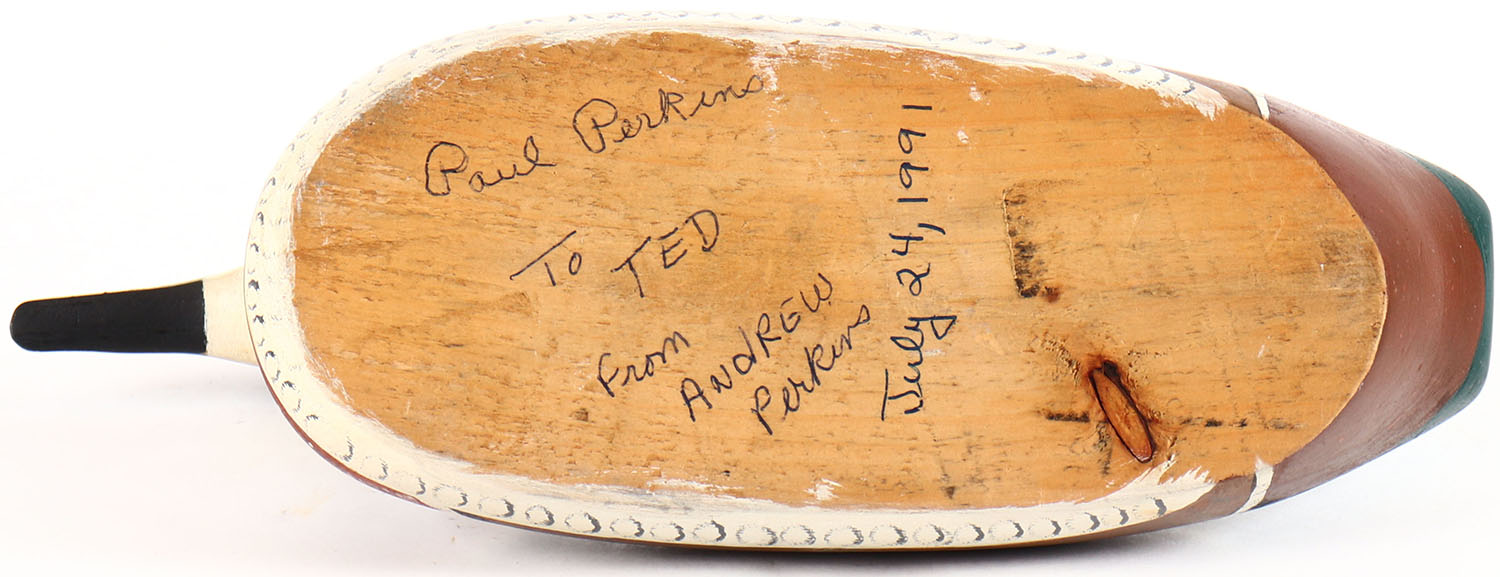 Paul Perkins
To TED
From
ANDREW
Perkins
July 24, 1991